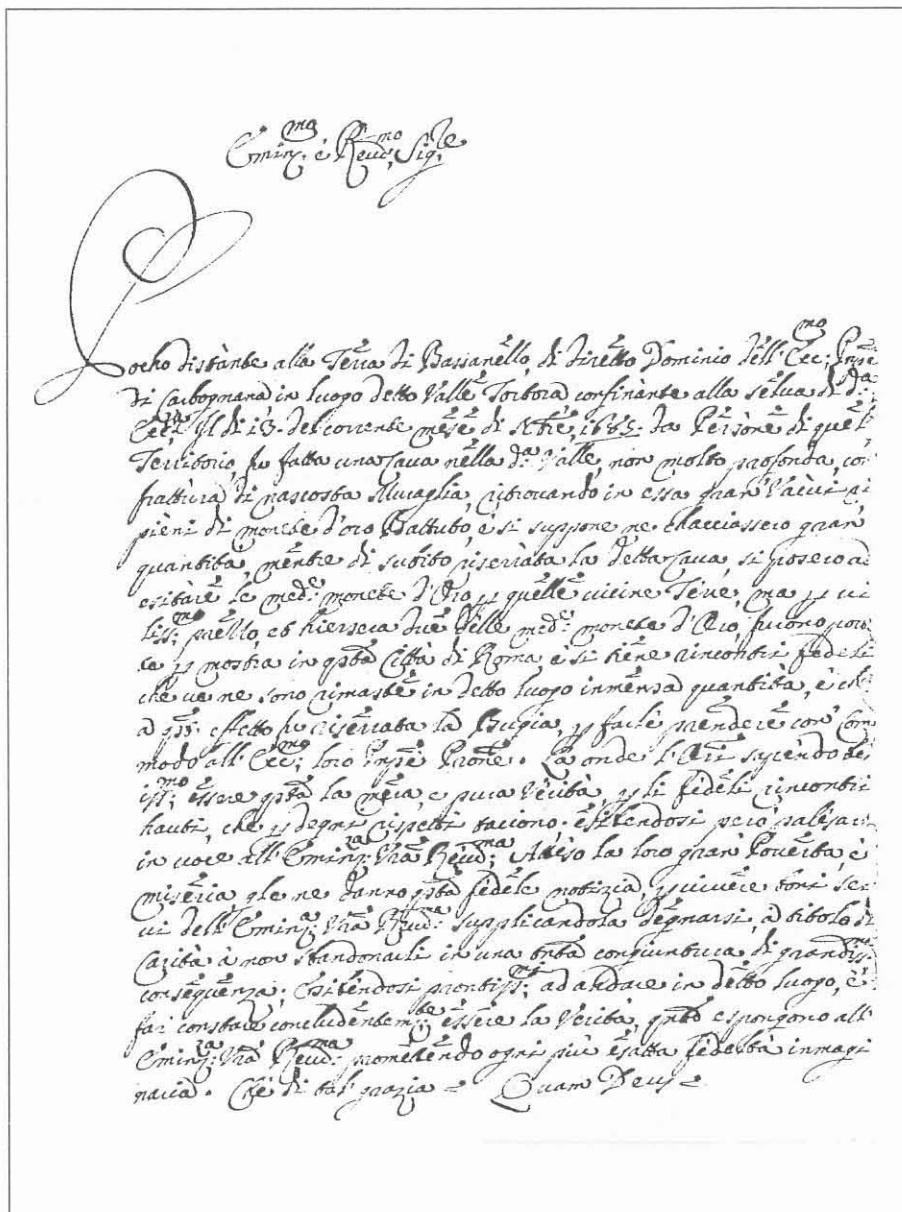 Eminz:mo e Reud:mo Sig:re
Pocho distante alla Terra di Bassanello, di diretto Dominio dell' Ecc:mo Prnpe
di Carbognana in luogo detto Valle Tortora confinante alla selva di d:a
Ecc:za Il di 13. del corrente mese di 1685. da Persone di quel
Territorio, fu fatta una Cava nella d:a Valle, non molto profonda, con
frattura di nascosta Muraglia, ritrovando in essa gran Vasi
pieni di monete d'oro Battuto, e si suppone ne gran
quantita, mentre di subito riserrata la detta Cava, si posero ad
esitare le med:e monete d'Oro p quelle vicine Terre, ma p vi
liss:mo prezzo, et hiersera due delle med:e monete d'Oro, furono porta
te p mostra in qsta Città di Roma e si tiene rincontri fedeli
che ve ne sono rimaste in detto luogo inmensa quantità, e che
a qsto effetto fu riserrata la Bugia, p farle prendere con Com
modo all' Ecc:mo loro Prnpe Prone. La onde l' sapendo be
iss:mo essere qsta la mera, e pura Verità, p li fedeli rincontri
hauti, che p degni rispetti taciono, esibendosi però palesarli
in voce all' Eminz:za Vra Reud:ma Atteso la loro gran Povertà, e
miseria gle ne danno qsta fedele notizia, p vivere ser
vi dell' Eminz:za Vra Reud:ma supplicandola degnarsi, à titolo di
Carità à non abandonarli in una tnta congiuntura di grandiss:ma
consequenza; Esibendosi prontiss:mi ad andare in detto luogo, e
far constare concludentem:te essere la Verità, qnto espongono all'
Eminz:za Vra Reud:ma promettendo ogni più esatta fedeltà inmagi
naria. Che di tal grazia e Quam Deus e